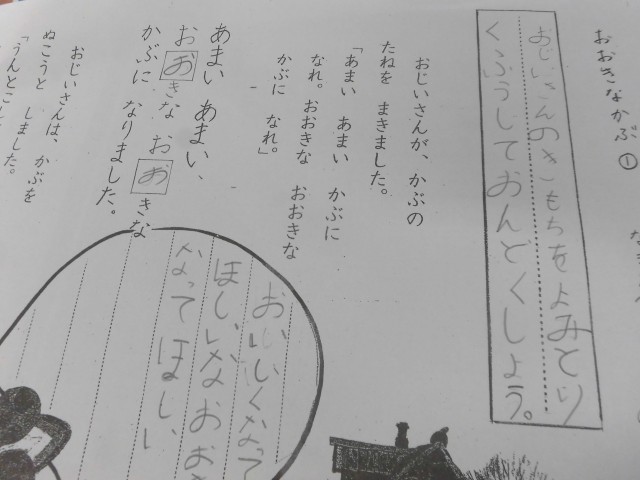 おおきなかぶ①
おじいさんのきもちをよみとり
くふうしておんどくしよう。
おじいさんが、かぶの
たねを まきました。
「あまい あまい かぶに
なれ。おおきな おおきな
かぶに なれ。」
あまい あまい、
おおきな おおきな
かぶに なりました。
おじいさんは、かぶを
ぬこうと しました。
「うんとこし
おいしくなって
ほしいなおおき
なってほしい